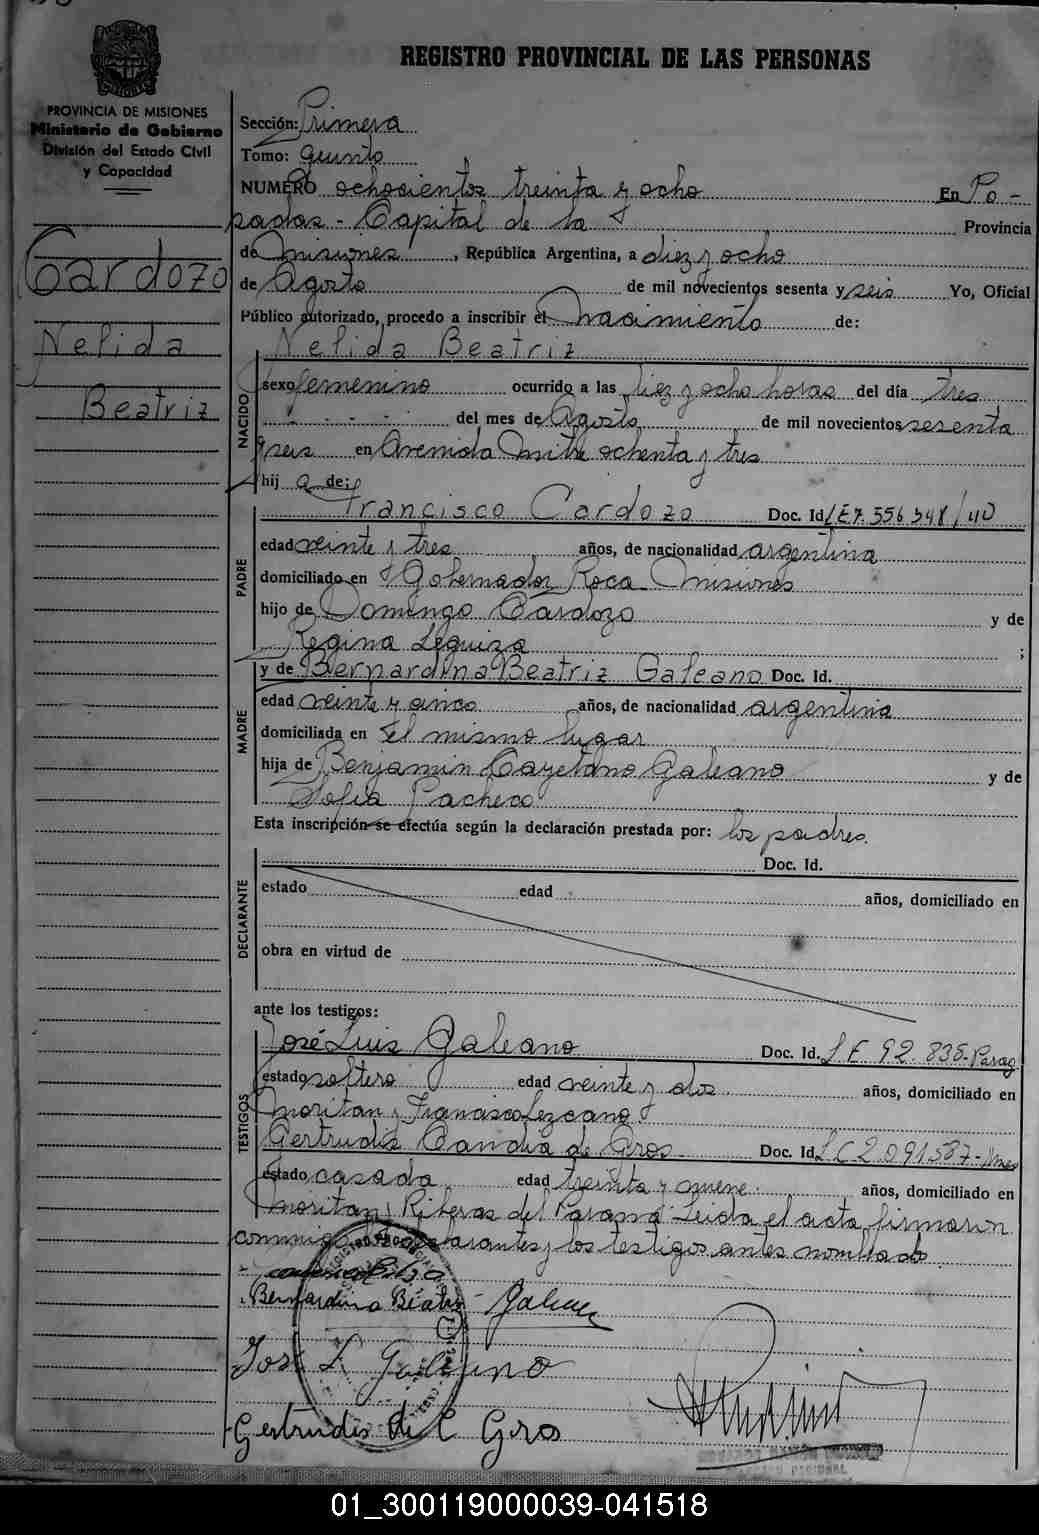 REGISTRO PROVINCIAL DE LAS PERSONAS
PROVINCIA DE MISIONES
Ministerio de Gobierno
División del Estado Civil
y Capacidad
Cardozo
Nelida
Beatriz
Sección: Primera
Tomo: quinto
NUMERO ochocientos treinta y ocho En Po-
sadas - Capital de la Provincia
de Misiones, República Argentina, a diez y ocho
de Agosto de mil novecientos sesenta y seis Yo, Oficial
Público autorizado, procedo a inscribir el Nacimiento de:
Nelida Beatriz
NACIDO
sexo femenino ocurrido a las diez y ocho horas del día tres
del mes de Agosto de mil novecientos sesenta
y seis en Avenida Mitre ochenta y tres
hij a de:
PADRE
Francisco Cardozo Doc. Id. LE 7.556.548/40
edad veinte y tres años, de nacionalidad argentina
domiciliado en Gobernador Roca Misiones
hijo de Domingo Cardozo y de
Regina Leguiza ;
MADRE
y de Bernardina Beatriz Galeano Doc. Id.
edad veinte y cinco años, de nacionalidad argentina
domiciliada en el mismo lugar
hija de Benjamin Cayetano Galeano y de
Sofia Pacheco
Esta inscripción se efectúa según la declaración prestada por: los padres.
DECLARANTE
Doc. Id.
estado edad años, domiciliado en
obra en virtud de
ante los testigos:
TESTIGOS
José Luis Galeano Doc. Id. L E 92.835-Parag
estado soltero edad veinte y dos años, domiciliado en
Moritan y Francisco Lezcano
Gertrudis Candia de Gros Doc. Id. L C 2.091.587-Mnes
estado casada edad treinta y nueve años, domiciliado en
Moritan y Riberas del Paraná Leida el acta, firmaron
conmigo los declarantes y los testigos antes nombrado
Bernardina Beatriz Galeano
José L Galeano
Gertrudis de C Gros
01_300119000039-041518